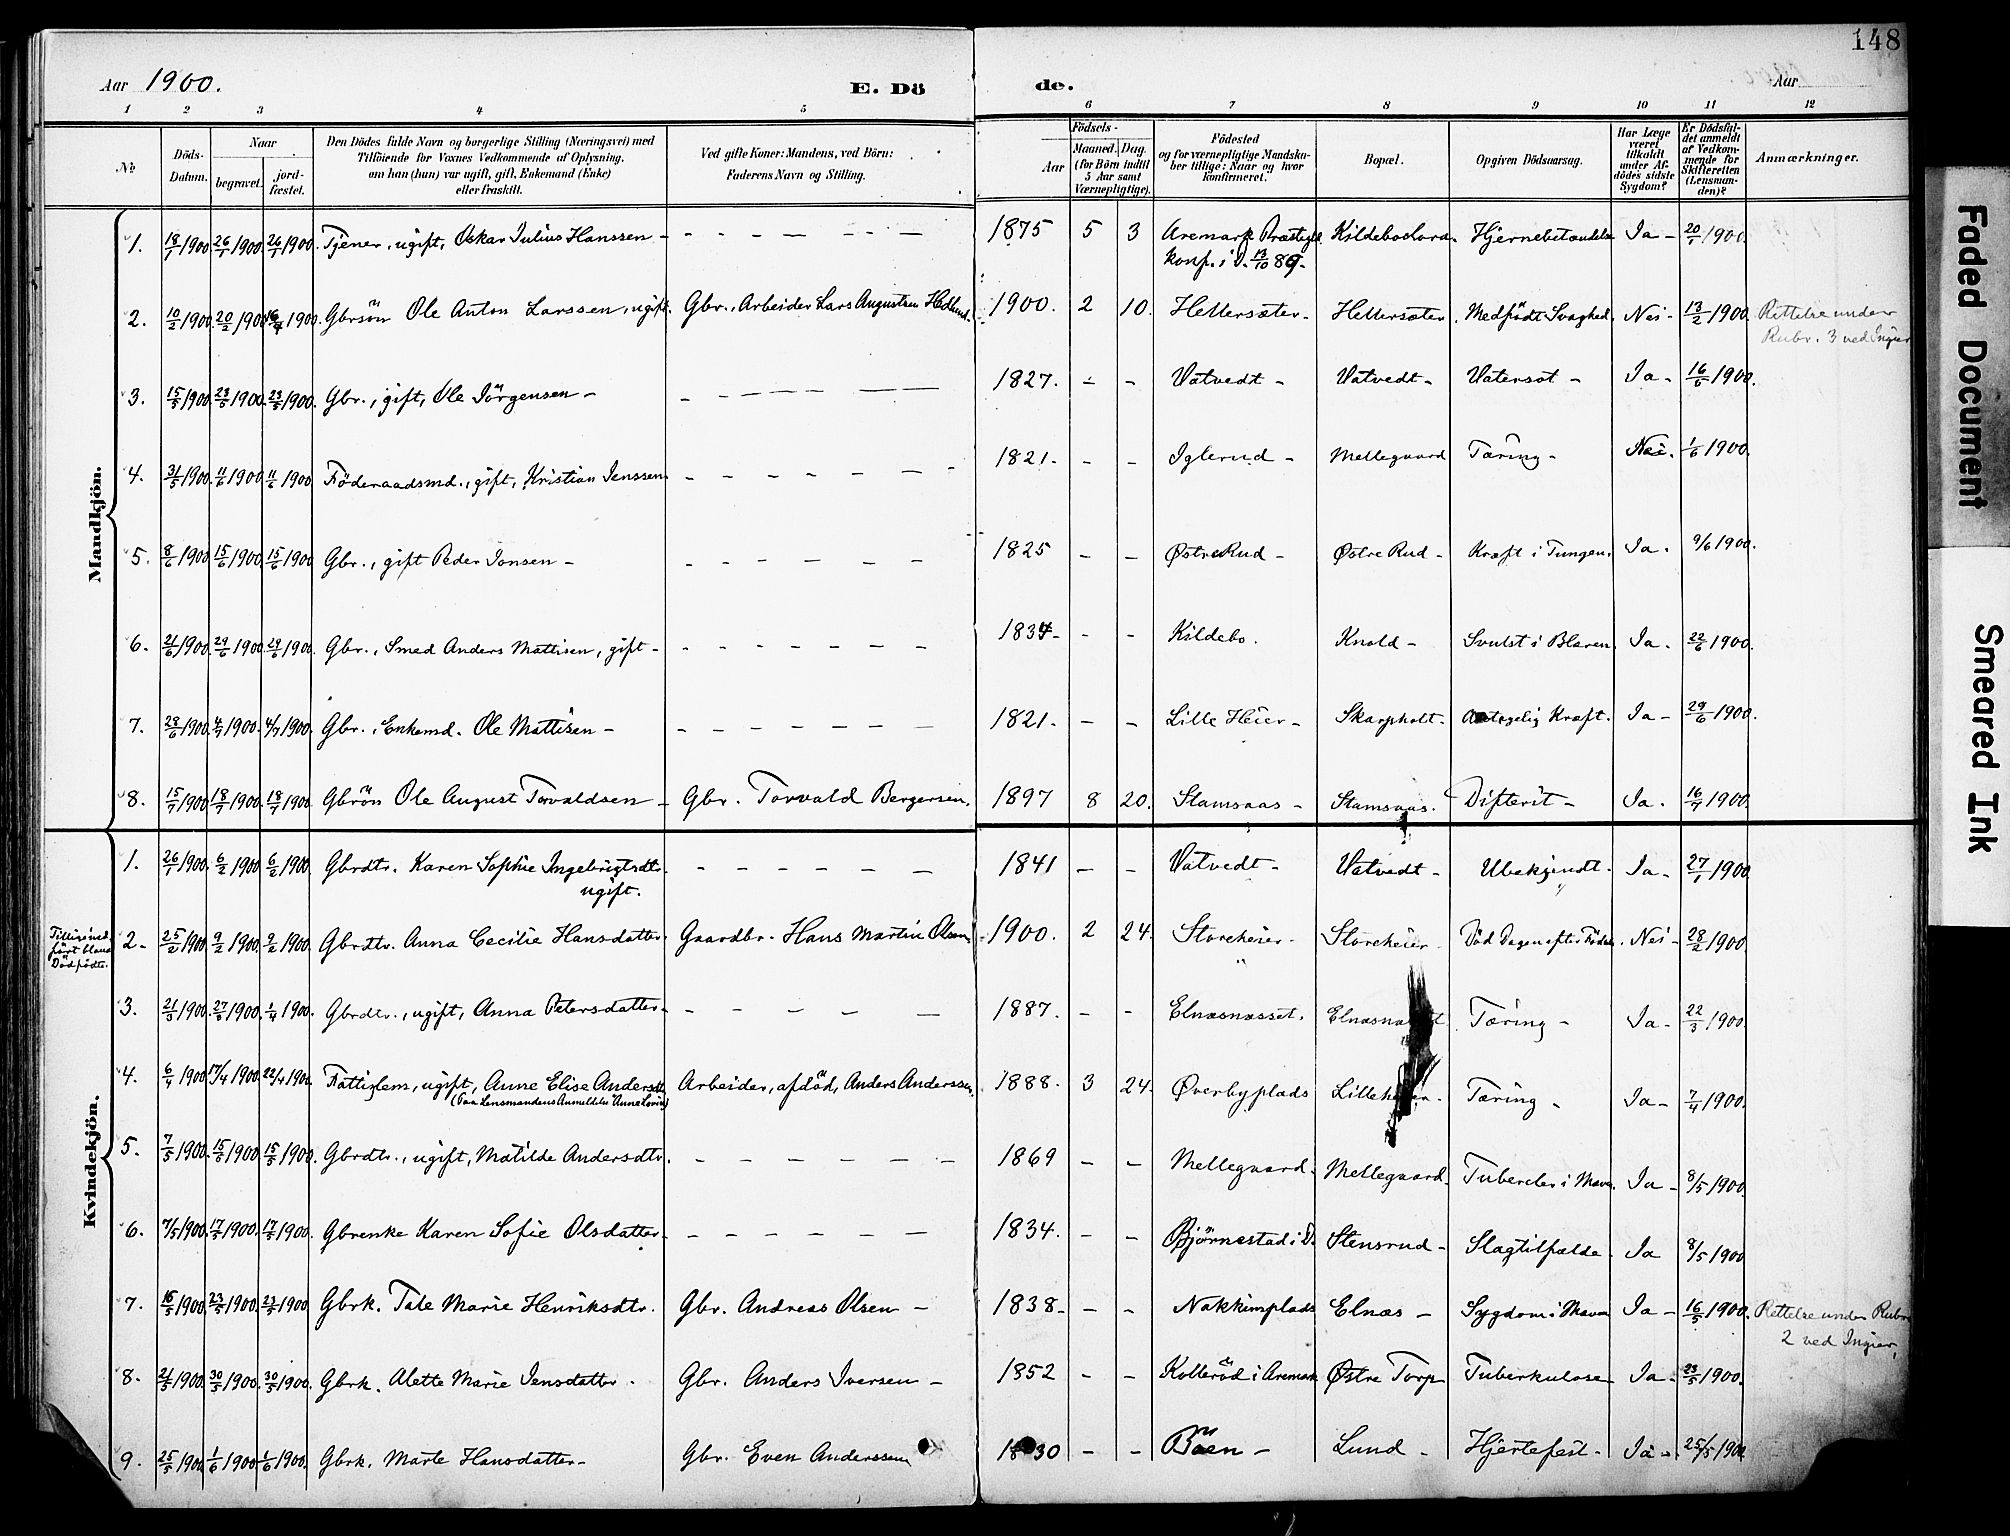 148
Aar 1900.
E. Dö de.
Aar
1 2 3 4 5 6 7 8 9 10 11 12
№
Döds-Datum.
Naar
begravet.
jord-fæstet.
Den Dödes fulde Navn og borgerlige Stilling (Næringsvei) med
Tilföiende for Voxnes Vedkommende af Oplysning,
om han (hun) var ugift, gift, Enkemand (Enke)
eller fraskilt.
Ved gifte Koner: Mandens, ved Börn:
Faderens Navn og Stilling.
Födsels-
Aar
Maaned. Dag.
(for Börn indtil
5 Aar samt
Værnepligtige).
Födested
og for værnepligtige Mandska-
ber tillige: Naar og hvor
konfirmeret.
Bopæl.
Opgiven Dödsaarsag.
Har Læge
været
tilkaldt
under Af-
dödes sidste
Sygdom?
Er Dödsfal-
det anmeldt
af Vedkom-
mende for
Skifteretten
(Lensman-
den)?
Anmærkninger.
Mandkjön.
1. 18/1 1900. 26/1 1900. 26/1 1900. Tjener, ugift, Oskar Julius Hanssen - 1875 5 3 Aremark Præstegd. Hjernebetændelse Ja - 20/1 1900.
Konf. i Ø. 13/10 89.
2. 10/2 1900. 20/2 1900 1900. Gbrsön Ole Anton Larssen, ugift. Gbr., Arbeider Lars Augustsen Hedlund. 1900. 2 10. Hellersæter - Hellersæter. Medfödt Svaghed. Nei - 13/2 1900. Rettelse under
Rubr. 3 ved Ingier
3. 15/5 1900. 23/5 1900. 23/5 1900. Gbr., gift, Ole Jörgensen - 1827. - - Vatvedt - Vatvedt - Vatersot - Ja - 16/5 1900.
4. 31/5 1900. 11/6 1900 11/6 1900 Föderaadsmd., gift, Kristian Jenssen 1821. - - Iglerud - Mellegaard Tæring - Nei. 1/6 1900.
5. 8/6 1900. 15/6 1900. 15/6 1900. Gbr., gift Peder Jonsen - 1825 - - Østre Rud - Østre Rud - Kræft i Tungen. Ja. 9/6 1900.
6. 21/6 1900. 29/6 1900. 29/6 1900. Gbr., Smed Anders Mattisen, gift - 1834 - - - Kildebo. Knold - Svulst i Blæren. Ja. 22/6 1900.
7. 28/6 1900. 4/7 1900. 4/7 1900. Gbr., Enkemd. Ole Mattisen - 1821. - - Lille Heier - Skarpholt - Kræft. Ja - 29/6 1900.
8. 15/7 1900. 18/7 1900. 18/7 1900. Gbrön Ole August Torvaldsen - Gbr. Torvald Bergersen. 1897 8 20. Stamsaas - Stamsaas. Difterit - Ja. 16/7 1900.
Kvindekjön.
1. 26/1 1900. 6/2 1900 6/2 1900. Gbrdtr. Karen Sophie Ingebrigtsdtr. 1841 - - Vatvedt - Vatvedt - Ubekjendt. Ja - 27/1 1900
ugift.
Tillige ind-
fört bland
Dödfödte.
2 - 25/2 1900. 9/2 1900. 9/2 1900. Gbrdtr. Anna Cecilie Hansdatter. Gaardbr. Hans Martin Olsen 1900. 2 24. Storeheier - Storeheier. Död Dagen efter Födsel. Nei - 28/2 1900.
3. 21/3 1900. 27/3 1900. 1/4 1900. Gbrdtr., ugift, Anna Petersdatter - 1887. - - Elnæsnæsset. Tæring - Ja - 22/3 1900.
4. 6/4 1900 17/4 1900 22/4 1900. Fattiglem, ugift, Anne Elise Andersdtr. Arbeider, afdöd, Anders Anderssen. 1888. 3 24. Øverbyplads Lilleheier. Tæring - Ja - 7/4 1900.
(Paa Lensmandens Anmeldelse "Anne Lovise")
5. 7/5 1900. 15/5 1900 15/5 1900. Gbrdtr., ugift, Matilde Andersdtr. 1869 - - Mellegaard. Mellegaard. Tubercler i Maven. Ja - 8/5 1900
6. 7/5 1900. 17/5 1900. 17/5 1900. Gbrenke Karen Sofie Olsdatter. 1834. - - Bjørnestad i Ø. Stensrud - Slagtilfælde. Ja 8/5 1900
7. 16/5 1900. 23/5 1900. 23/5 1900 Gbrk. Tale Marie Henriksdtr. Gbr. Andreas Olsen - 1838 - - - Nakkimplads Elnæs - Sygdom i Maven Ja - 16/5 1900. Rettelse under Rubr
2 ved Ingier,
8. 21/5 1900. 30/5 1900. 30/5 1900. Gbrk. Alette Marie Jensdatter. Gbr. Anders Iversen - 1852 - - Kolleröd i Aremark Østre Torp Tuberkulose Ja - 23/5 1900.
9. 25/5 1900 1/6 1900 1/6 1900. Gbrk. Marte Hansdatter - Gbr. Even Anderssen 1830 - - Böen - Lund - Hjertefeil - Ja - 25/5 1900
Faded Document
Smeared Ink